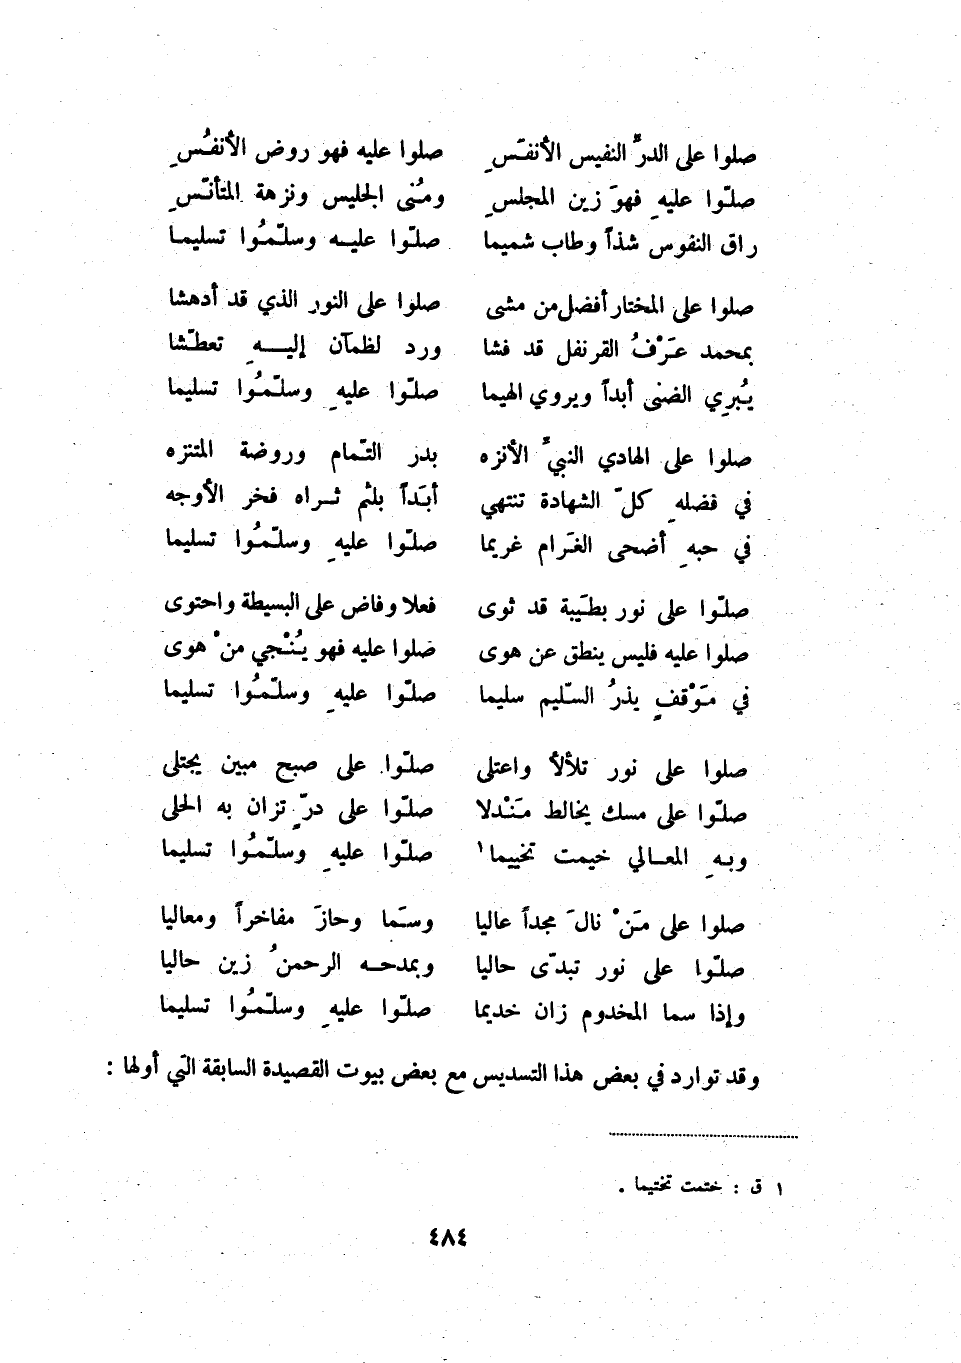 صلوا على الدرّ النفيس الأنفَسِ صلوا عليه فهو روض الأنفُسِ
صلّوا عليهِ فهوَ زين المجلسِ ومُنى الجليس ونزهة المتأنّسِ
راق النفوس شذاً وطاب شميما صلّوا عليه وسلّمُوا تسليما
صلوا على المختار أفضل من مشى صلوا على النور الذي قد أدهشا
بمحمد عَرْفُ القرنفل قد فشا ورد لظمآن إليهِ تعطّشا
يُبرِي الضنى أبداً ويروي الهيما صلّوا عليهِ وسلّمُوا تسليما
صلوا على الهادي النبيّ الأنزه بدر التّمام وروضة المتنزه
في فضلهِ كلّ الشهادة تنتهي أبَداً بلثم ثراه فخر الأوجه
في حبهِ أضحى الغَرام غريما صلّوا عليهِ وسلّمُوا تسليما
صلّوا على نور بطَيبة قد ثوى فعلا وفاض على البسيطة واحتوى
صلوا عليه فليس ينطق عن هوى صلوا عليه فهو يُنْجي منْ هوى
في مَوْقفٍ يذرُ السّليم سليما صلّوا عليهِ وسلّمُوا تسليما
صلوا على نور تلألأ واعتلى صلّوا على صبح مبين يجتلى
صلّوا على مسك يخالط مَنْدلا صلّوا على درّ تزان به الحلى
وبهِ المعالي خيمت تخييما١ صلّوا عليهِ وسلّمُوا تسليما
صلوا على مَنْ نالَ مجداً عاليا وسَما وحازَ مفاخراً ومعاليا
صلّوا على نور تبدّى حاليا وبمدحه الرحمنُ زين حاليا
وإذا سما المخدوم زان خديما صلّوا عليهِ وسلّمُوا تسليما
وقد توارد في بعض هذا التسديس مع بعض بيوت القصيدة السابقة التي أولها :
١ ق : ختمت تختيما .
٤٨٤